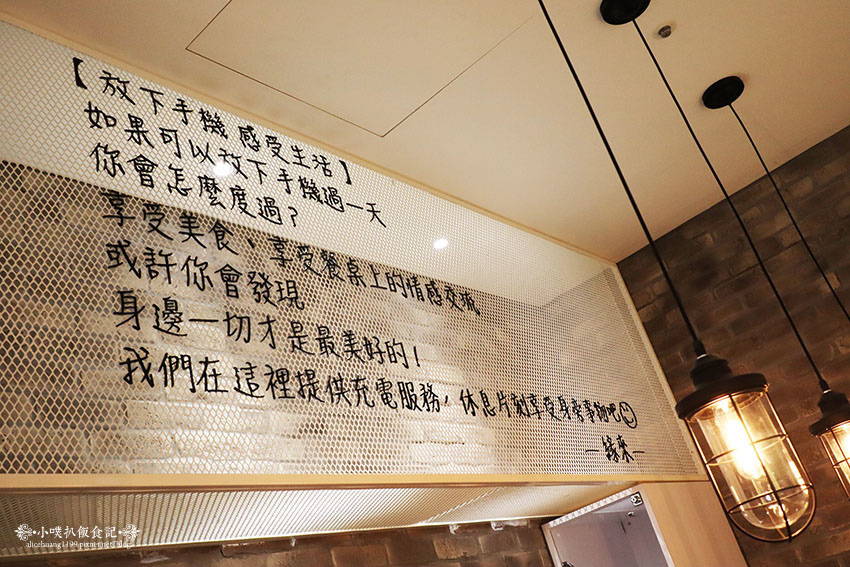 【放下手機 感受生活】
如果可以放下手機過一天
你會怎麼度過？
享受美食、享受餐桌上的情感交流
或許你會發現
身邊一切才是最美好的！
我們在這裡提供充電服務，休息片刻享受身旁事物吧
—緣來—
小噗扒飯食記